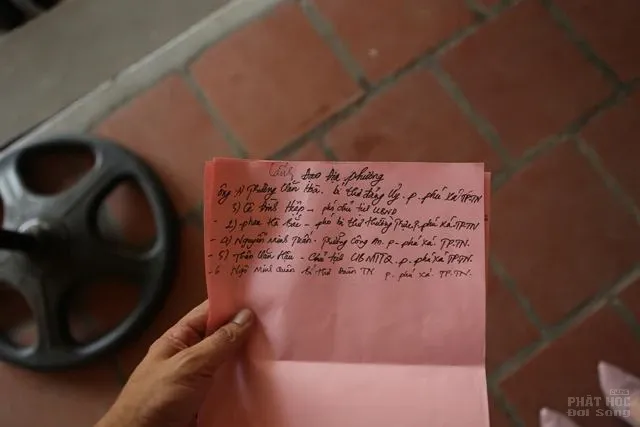 Lãnh Đạo Địa phương
Ông 1) Trương Văn Hòa. bí thư đảng ủy. p. phú Xá TPTN
3) Lê Hiệp - phó chủ tịch UBND
- 2) phan Hà Bắc - phó bí thư thường trực. p. phú xá. TPTN
- 4) Nguyễn Minh Tuấn. Trưởng Công An. p. phú xá. TP.TN.
- 5) Trần Văn Hữu - Chủ tịch UBMTTQ. p. phú xá TP.TN.
- 6 Ngô Minh Quân bí thư Đoàn TN p. phú xá. TP.TN.
PHẬT HỌC
Đời Sống